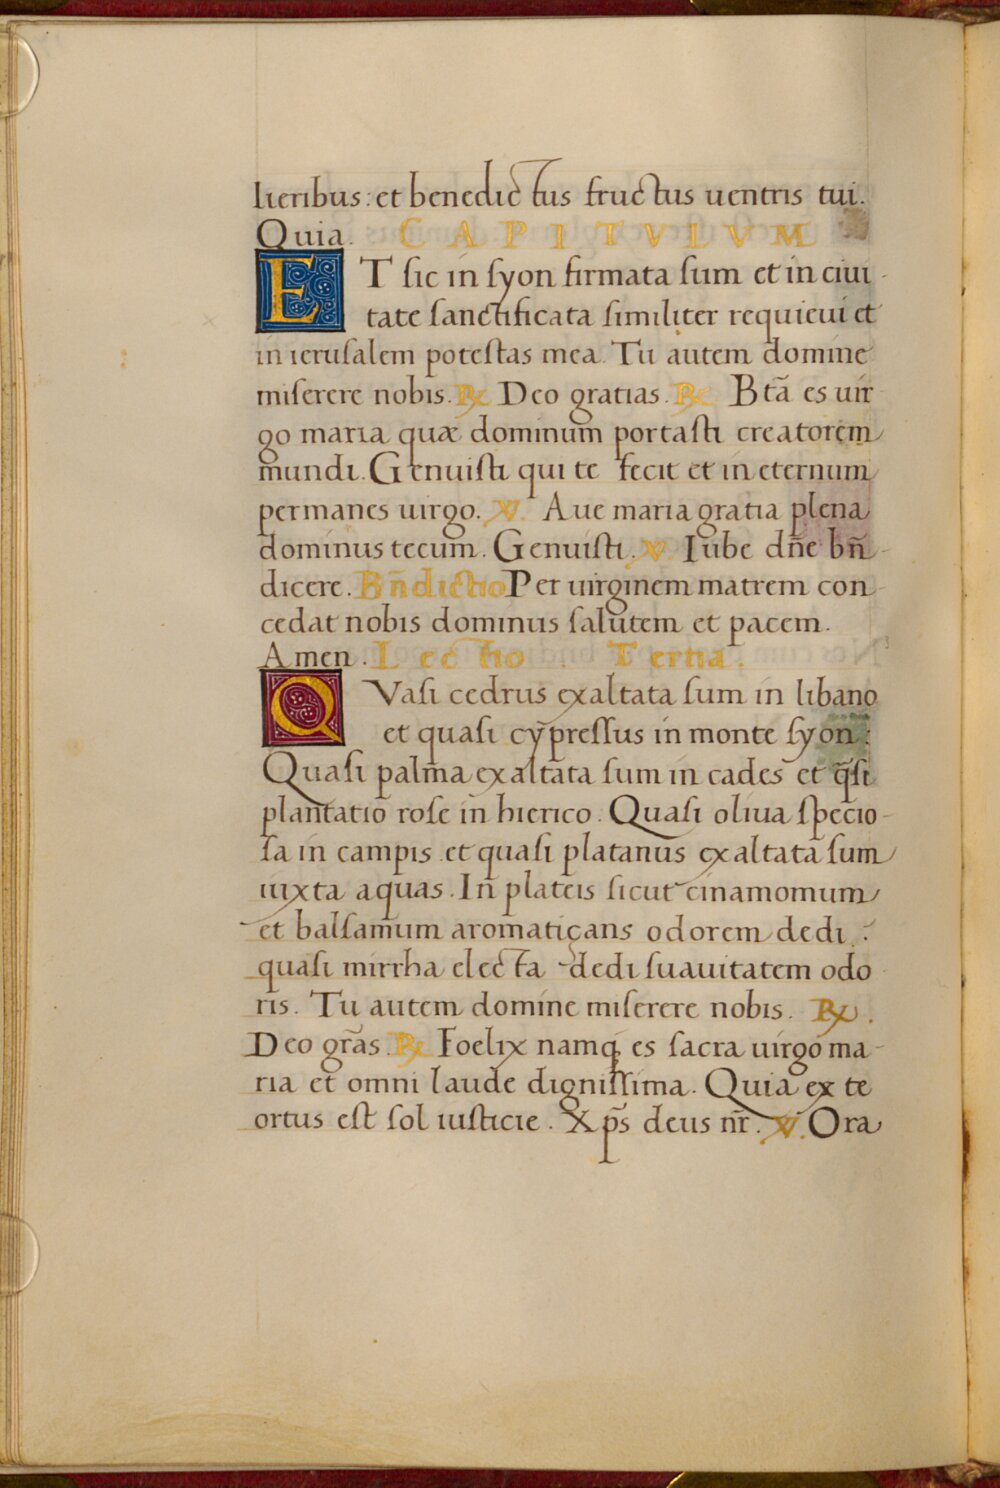 lieribus: et benedictus fructus uentris tui.
Quia. CAPITVLVM
ET sic in syon firmata sum et in ciui-
tate sanctificata similiter requieui et
in ierusalem potestas mea. Tu autem domine
miserere nobis. ℞ Deo gratias. ℞ Btã es uir
go maria quæ dominum portasti creatorem
mundi. Genuisti qui te fecit et in eternum
permanes uirgo. ℣. Aue maria gratia plena
dominus tecum. Genuisti. ℣. Iube dñe bñ-
dicere. Bñdictio Per uirginem matrem con-
cedat nobis dominus salutem et pacem.
Amen. Lectio Tertia.
QVasi cedrus exaltata sum in libano
et quasi cypressus in monte syon:
Quasi palma exaltata sum in cades et q̃si
plantatio rose in hierico. Quasi oliua specio-
sa in campis et quasi platanus exaltata sum
iuxta aquas. In plateis sicut cinamomum
et balsamum aromatiçans odorem dedi:
quasi mirrha electa dedi suauitatem odo
ris. Tu autem domine miserere nobis. ℞.
Deo grãs. ℞ Foelix namq; es sacra uirgo ma-
ria et omni laude dignissima. Quia ex te
ortus est sol iusticie. Xp̃s deus nr̃. ℣. Ora